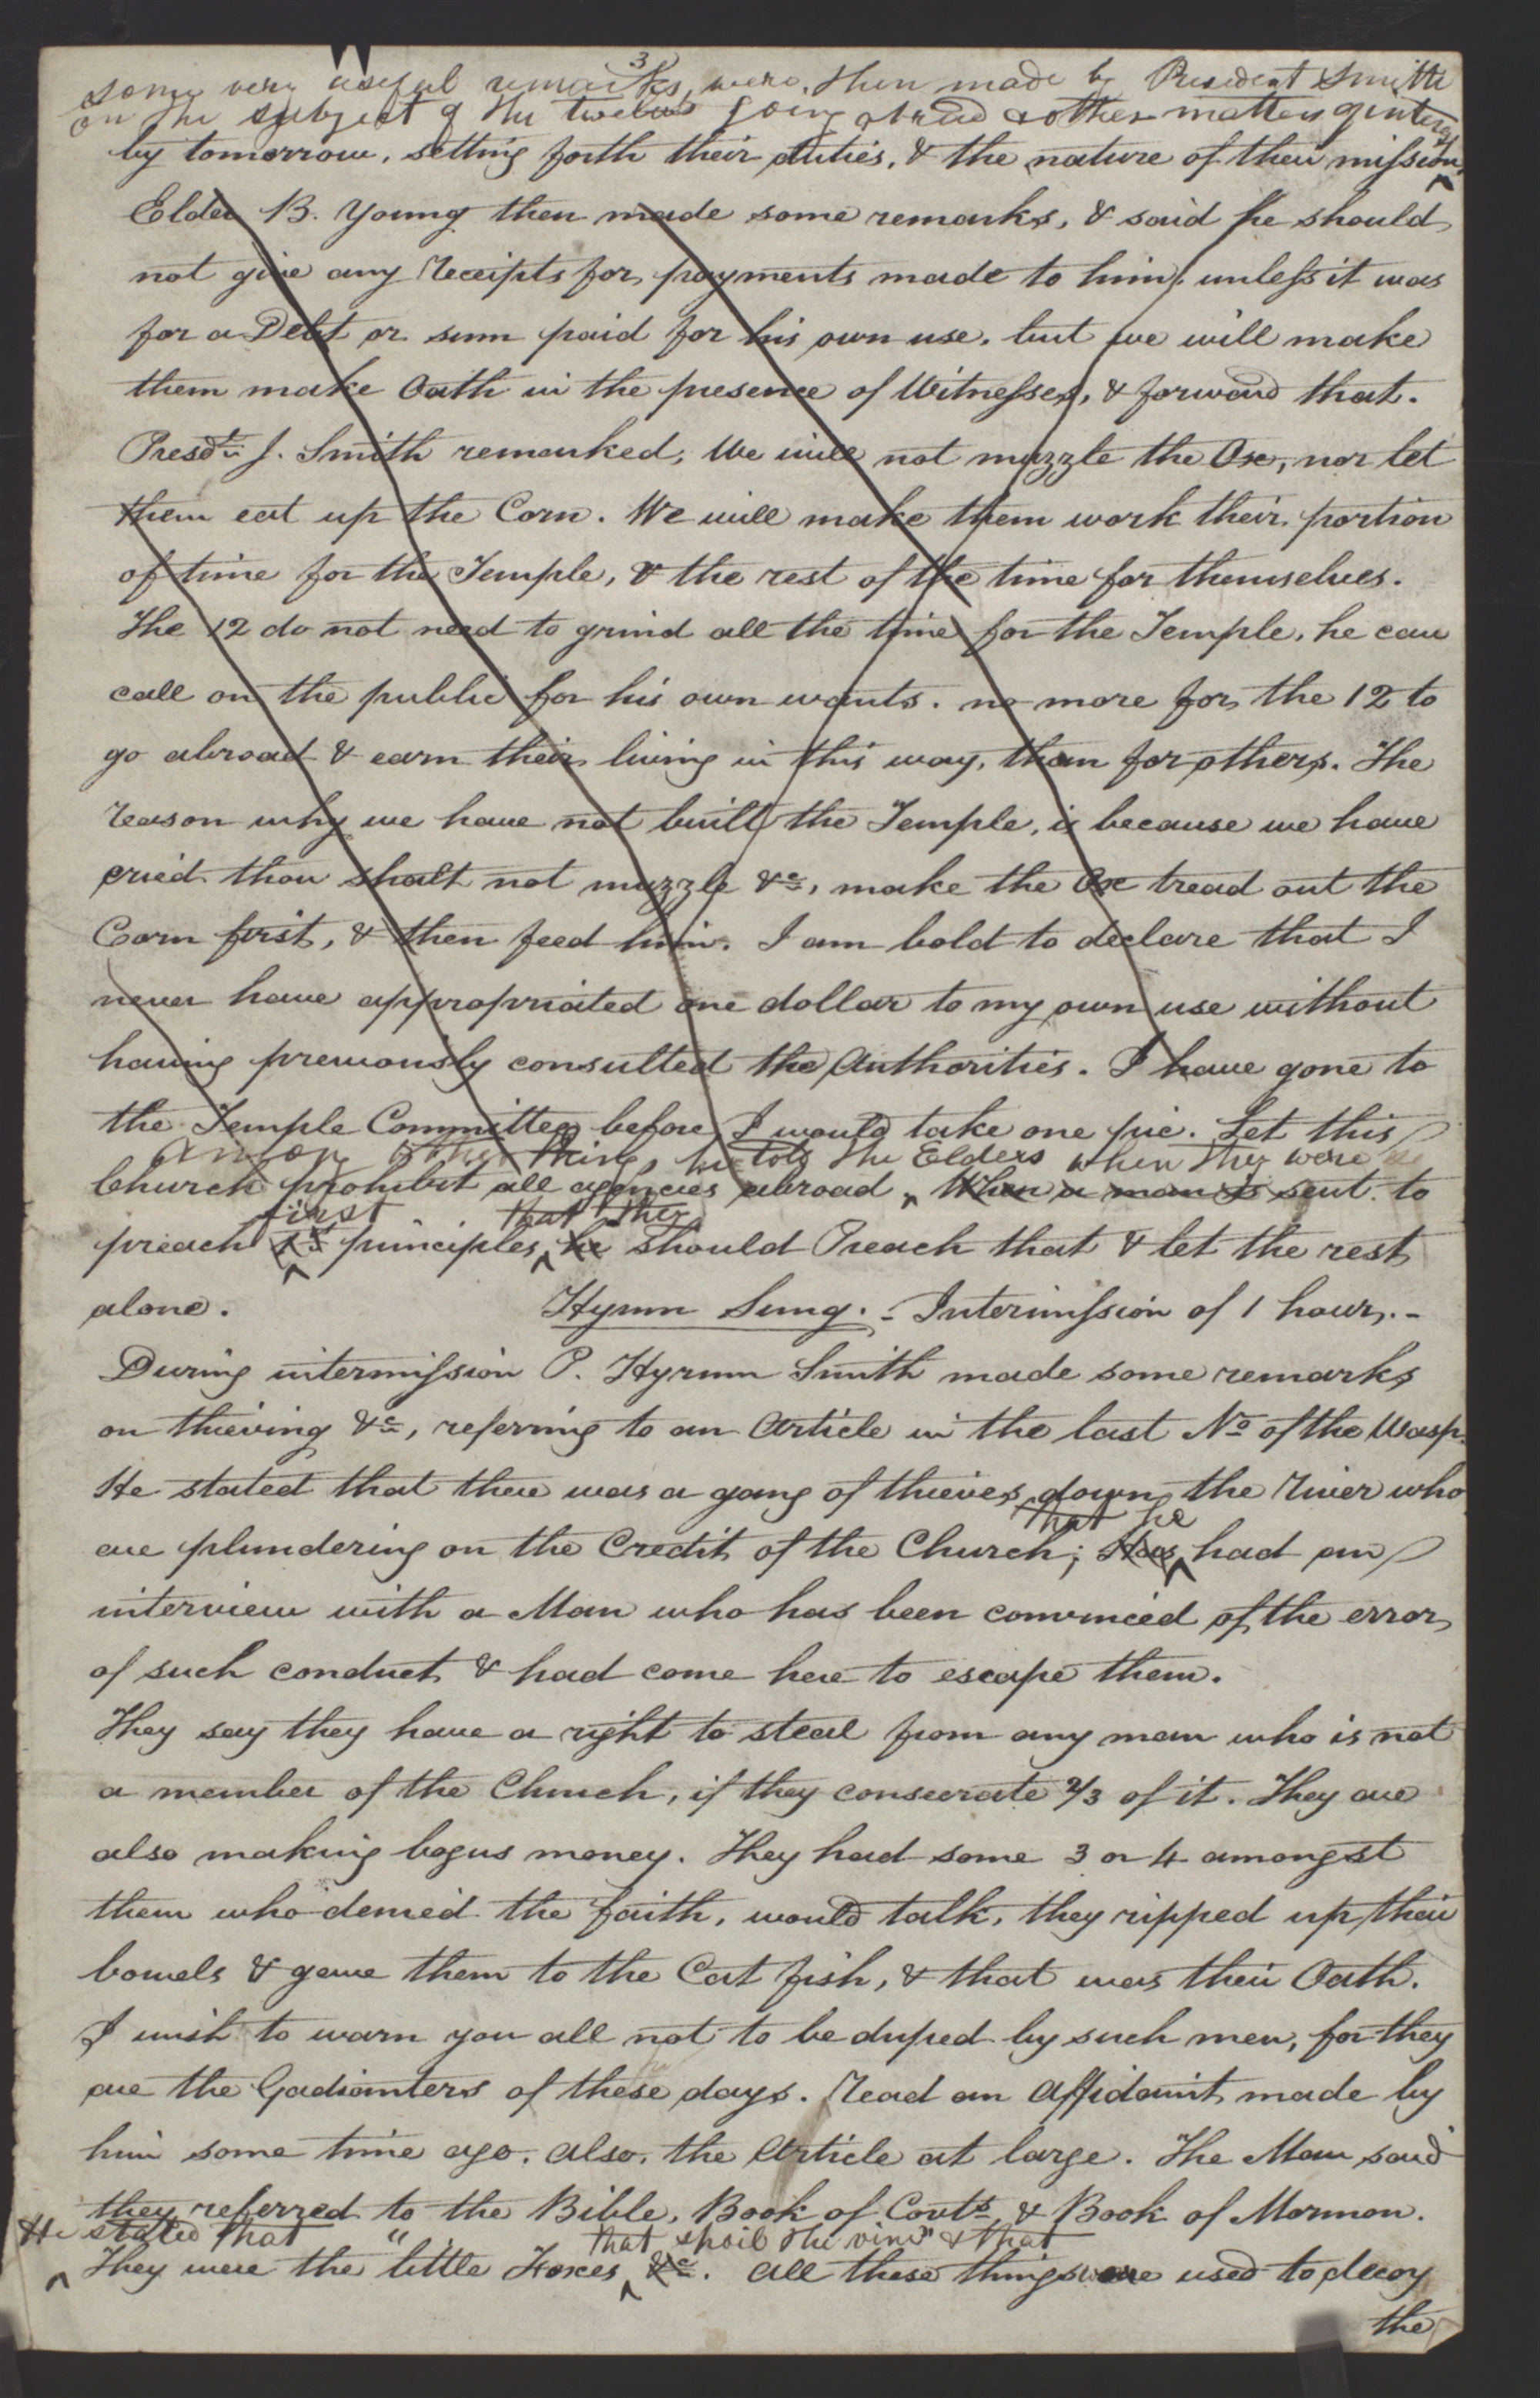 3
some very useful remarks, were, then made by President Smith
on the subject of the twelve going abroad & other matters
by tomorrow, setting forth their duties, & the nature of their mission,
Elder B. Young then made some remarks, & said he should
not give any receipts for payments made to him, unless it was
for a Debt or sum paid for his own use, but we will make
them make Oath in the presence of Witnesses, & forward that.
Presdt. J. Smith remarked, We will not muzzle the Ox, nor let
them eat up the Corn. We will make them work their portion
of time for the Temple, & the rest of the time for themselves.
The 12 do not need to grind all the time for the Temple, he can
call on the public for his own wants. no more for the 12 to
go abroad & earn their living in this way, than for others. The
reason why we have not built the Temple, is because we have
cried thou shalt not muzzle &c, make the Ox tread out the
Corn first, & then feed him. I am bold to declare that I
never have appropriated one dollar to my own use without
having previously consulted the Authorities. I have gone to
the Temple Committee before I would take one pie. Let this
Among other things, he told the Elders when they were
Church prohibit all agencies abroad, When a man is sent to
first that they
preach 1st principles, he should Preach that & let the rest
alone. Hymn Sung. - Intermission of 1 hour. -
During intermission P. Hyrum Smith made some remarks
on thieving &c, referring to an Article in the last No of the Wasp.
He stated that there was a gang of thieves down the River who
that he
are plundering on the Credit of the Church; Has had an
interview with a Man who has been convinced of the error
of such conduct & had come here to escape them.
They say they have a right to steal from any man who is not
a member of the Church, if they consecrate 2/3 of it. They are
also making bogus money. They had some 3 or 4 amongst
them who denied the faith, would talk, they ripped up their
bowels & gave them to the Cat fish, & that was their Oath.
I wish to warn you all not to be duped by such men, for they
are the Gadianters of these days. Read an Affidavit made by
him some time ago. also, the Article at large. The Man said
they referred to the Bible, Book of Covts & Book of Mormon.
He stated that " that spoil the vine" & that
They were the little Foxes &c. All these things were used to decoy
the